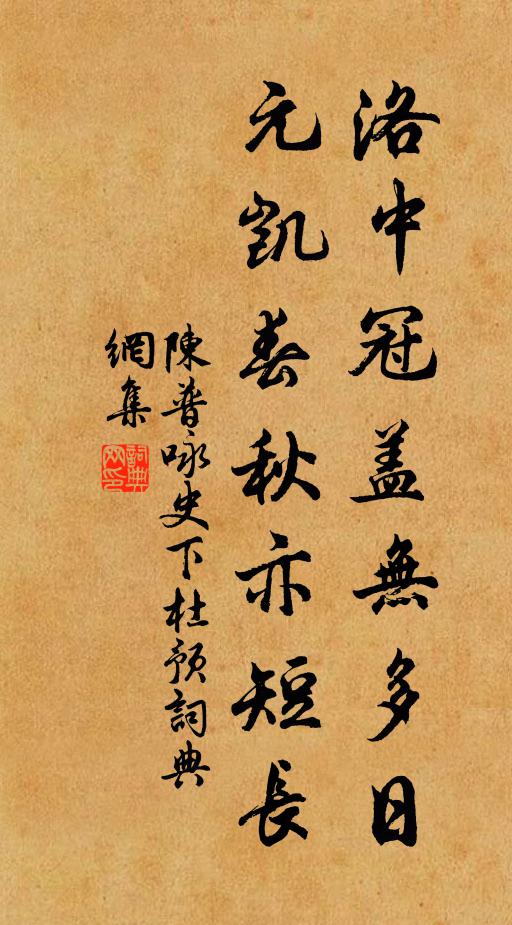 洛中冠盖無多日
元凱春秋亦短長
陳普咏史下杜預詞典
網集
詞典
网印